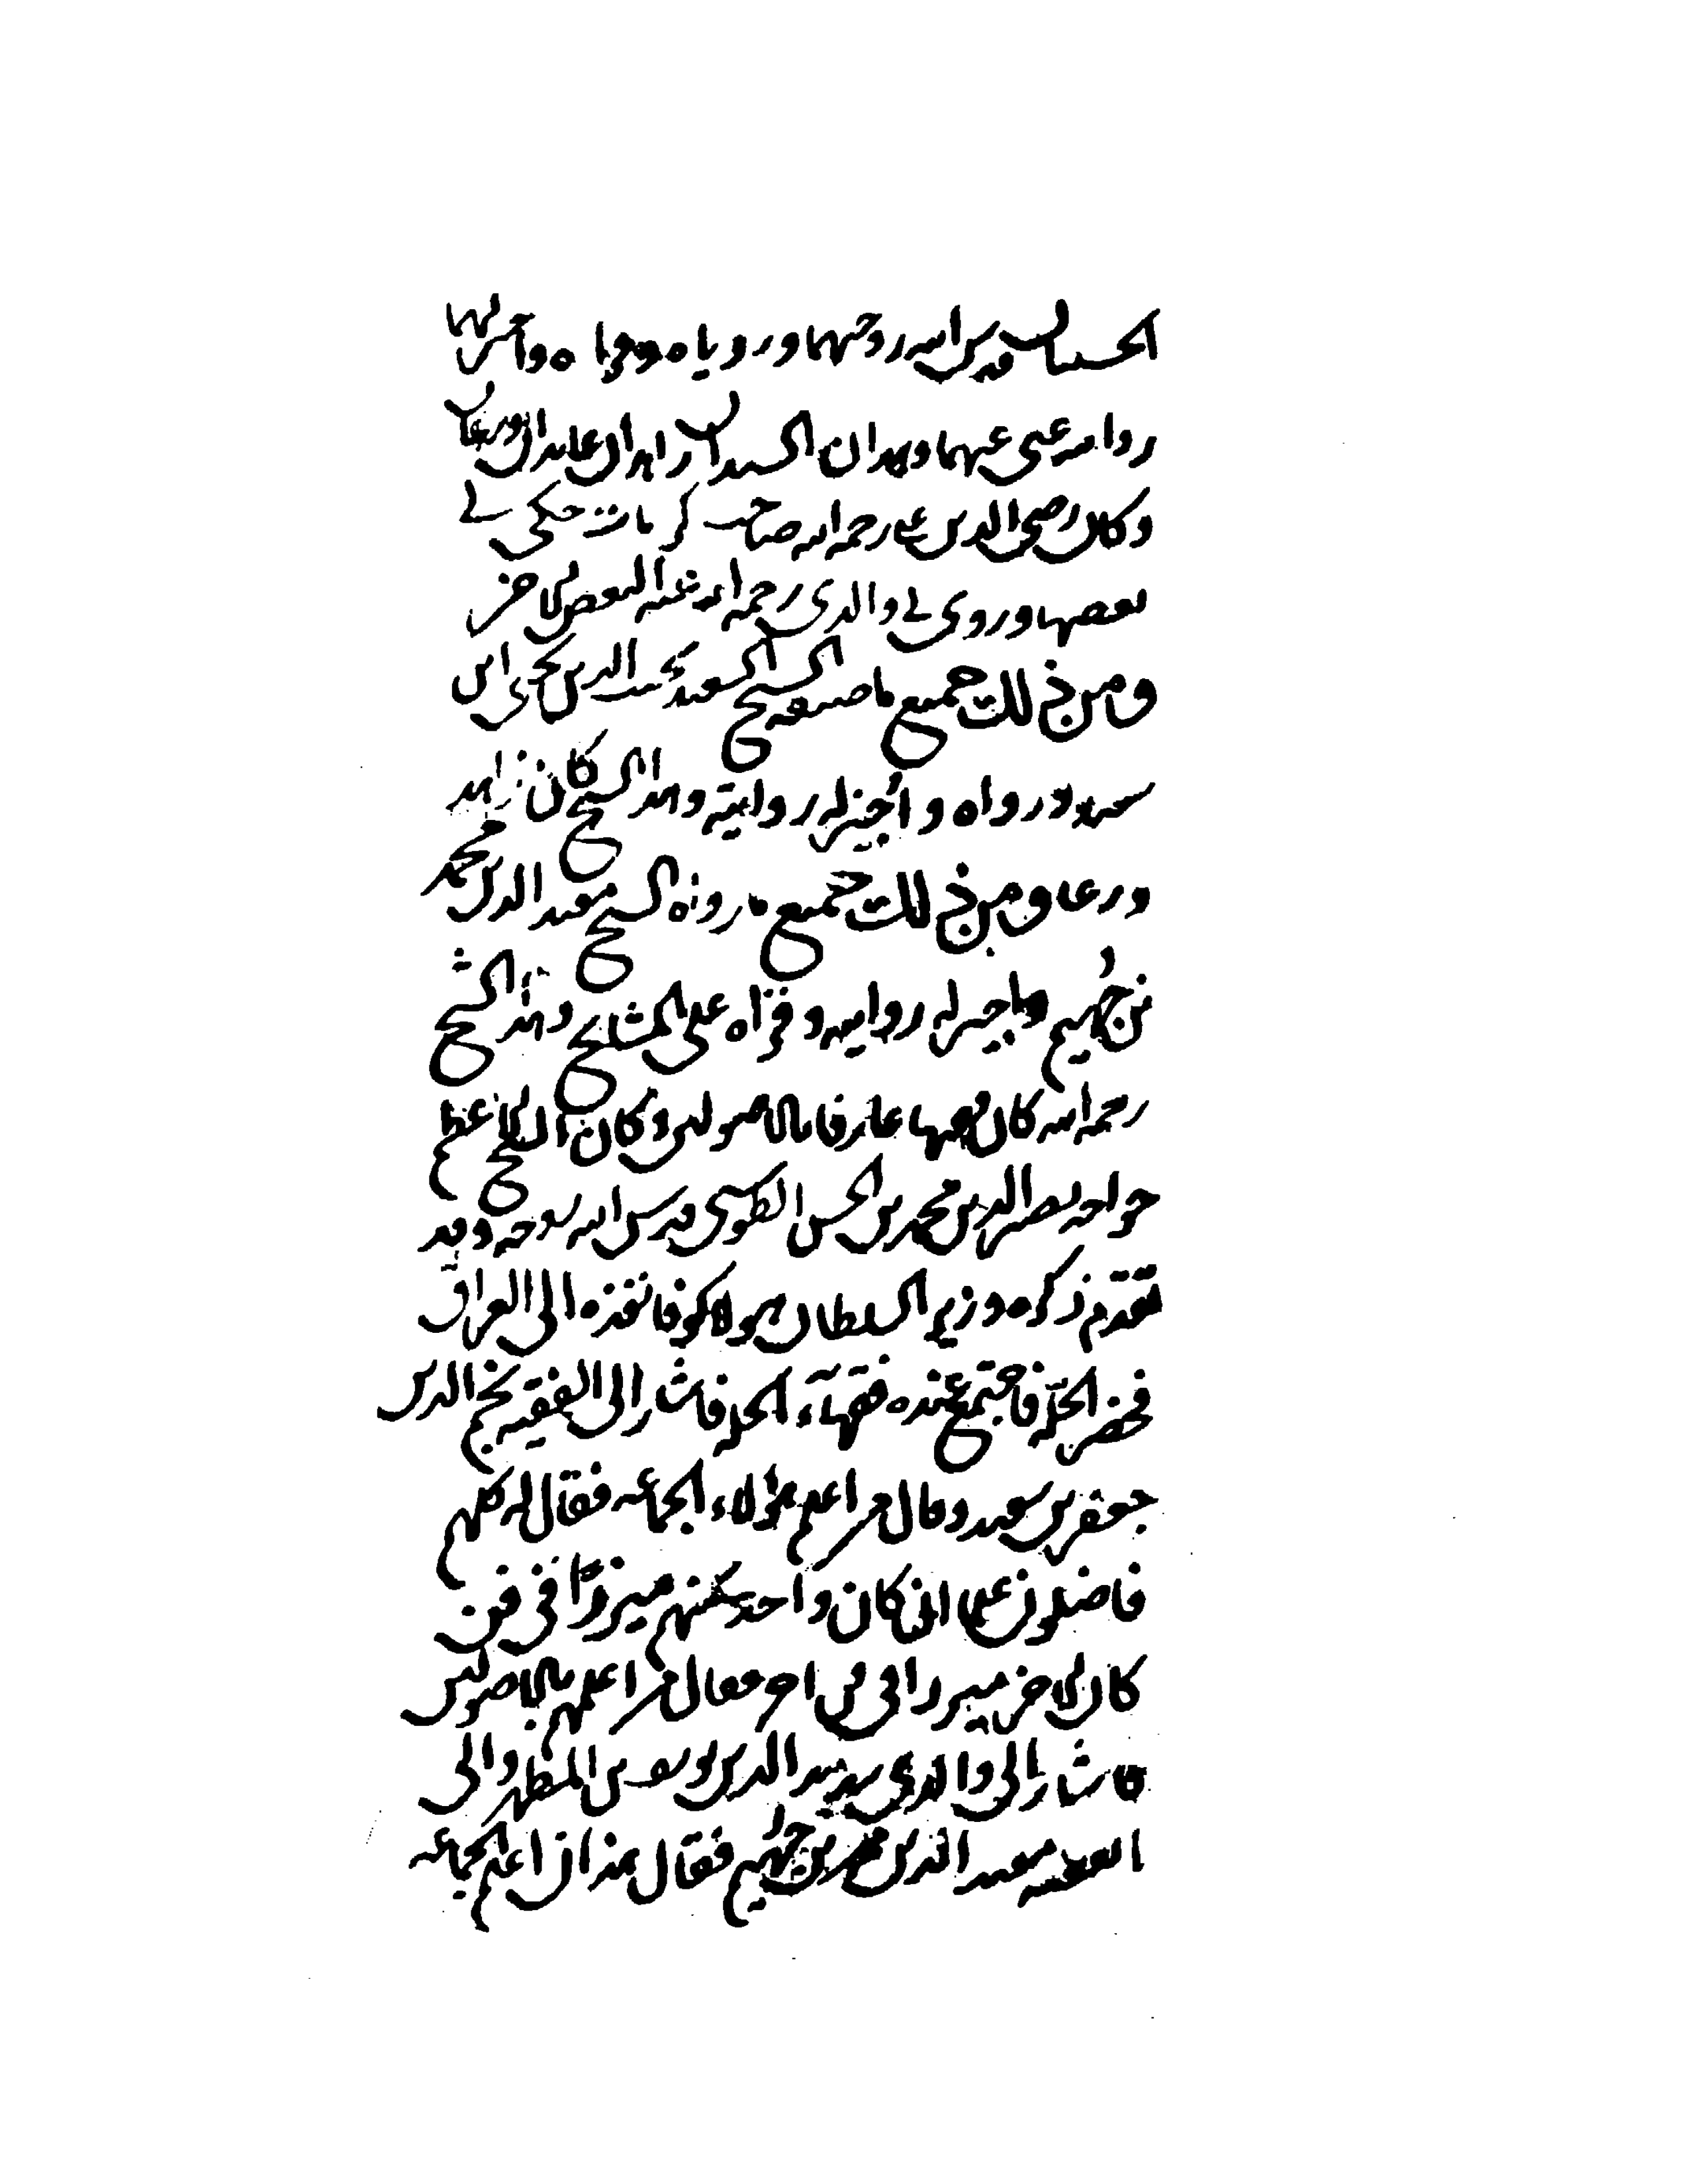 الحسنيان قدس الله روحهما ورویاه وقرآه واجیز لهما
روایته عنی عنهما وهذان السیدان زاهدان عابدان ورعان
وکان رضی الدین علی رحمه الله صاحب کرامات حکی لی
بعضها وروی لی والدی رحمه الله عنه البعض الاخر
ومن ذلک جمیع ما صنفه الشیخ السعید نجیب الدین یحیی ابن
سعید ورواه واجیز له روایته وهذا الشیخ کان زاهدا
ورعا ومن ذلک جمیع ما رواه الشیخ مفید الدین محمد
بن جهیم وما اجیز له روایته وقرأه علی المشایخ وهذا الشیخ
رحمه الله کان فقیها عارفا بالاصولین وکان الشیخ الاعظم
خواجه نصیر الدین محمد بن الحسن الطوسی قدس الله روحه وقد
تقدم ذکره وزیر السلطان هولاکو فانفذه الی العراق
فحضر الحلّة فاجتمع عنده فقهآء الحلة فاشار الی الفقیه نجم الدین
جعفر بن سعید وقال من اعلم هؤلاء الجماعه فقال له کلهم
فاضلون علما ان کان واحد منهم مبرزا فی فن
کان الاخر مبرزا فی فن اخر فقال من اعلمهم بالاصولین
فاشار الی والدی سدید الدین یوسف بن المطهر والی
الفقیه مفید الدین محمد بن جهیم فقال هذان اعلم الجماعه